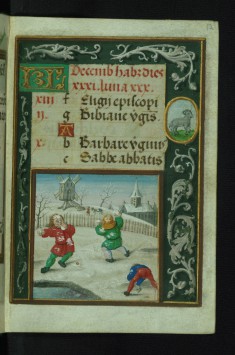 KL Decemb hab: dies
xxxi. luna xxx.
xiii f Eligii episcopi
ii. g Bibiane v̄gis.
A
x. b Barbare v̄ginis
c Sabbe abbatis